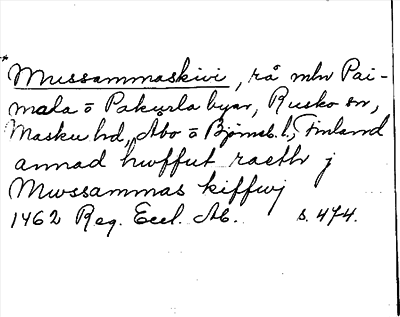 *Mussammaskivi, rå mln Pai-
mala o Pakurla byar, Rusko sn,
Masku hd, Åbo o Björneb. l., Finland
annad hwffut raeth j
Mwssammas kiffwj
1462 Reg. Eccl. Ab. s. 474.